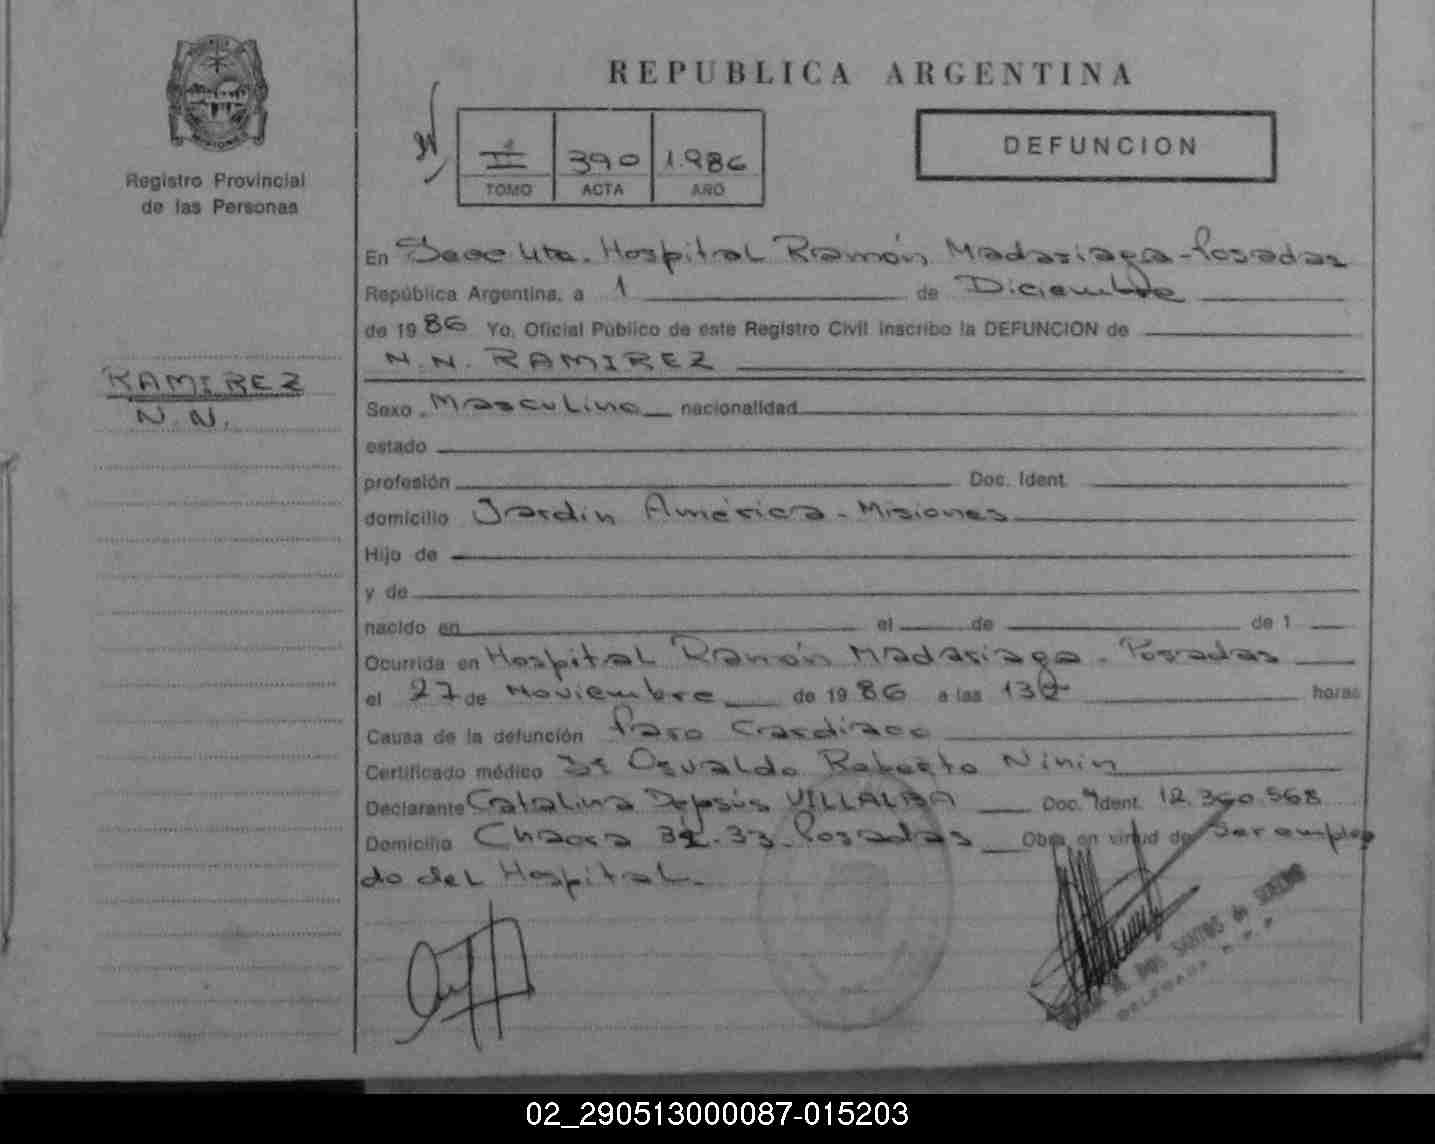 REPUBLICA ARGENTINA
DEFUNCION
II 390 1.986
TOMO ACTA AÑO
Registro Provincial
de las Personas
En Secc 4ta. Hospital Ramón Madariaga - Posadas
República Argentina, a 1 de Diciembre
de 1986 Yo, Oficial Público de este Registro Civil inscribo la DEFUNCION de
N.N. RAMIREZ
RAMIREZ
N.N.
Sexo Masculino nacionalidad
estado
profesión Doc. Ident.
domicilio Jardín América - Misiones
Hijo de
y de
nacido en el de de 1
Ocurrida en Hospital Ramón Madariaga - Posadas
el 27 de Noviembre de 1986 a las 13 horas
Causa de la defunción Paro Cardíaco
Certificado médico Dr Osvaldo Roberto Ninin
Declarante Catalina Dejesús VILLALBA Doc. Ident. 12.360.568
Domicilio Chacra 32-33 Posadas Obra en virtud de Ser emplea
do del Hospital.
DOS SANTOS de
DELEGADA R.P.P.
02_290513000087-015203